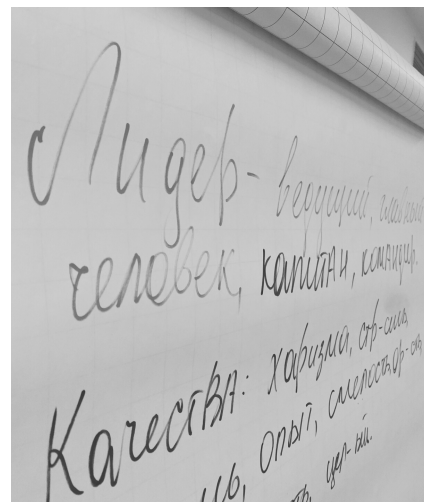 Лидер - ведущий, главный
человек, капитан, командир.
Качества: харизма, стр-сть,
опыт, смелость, ор-сть,
цел-ый.